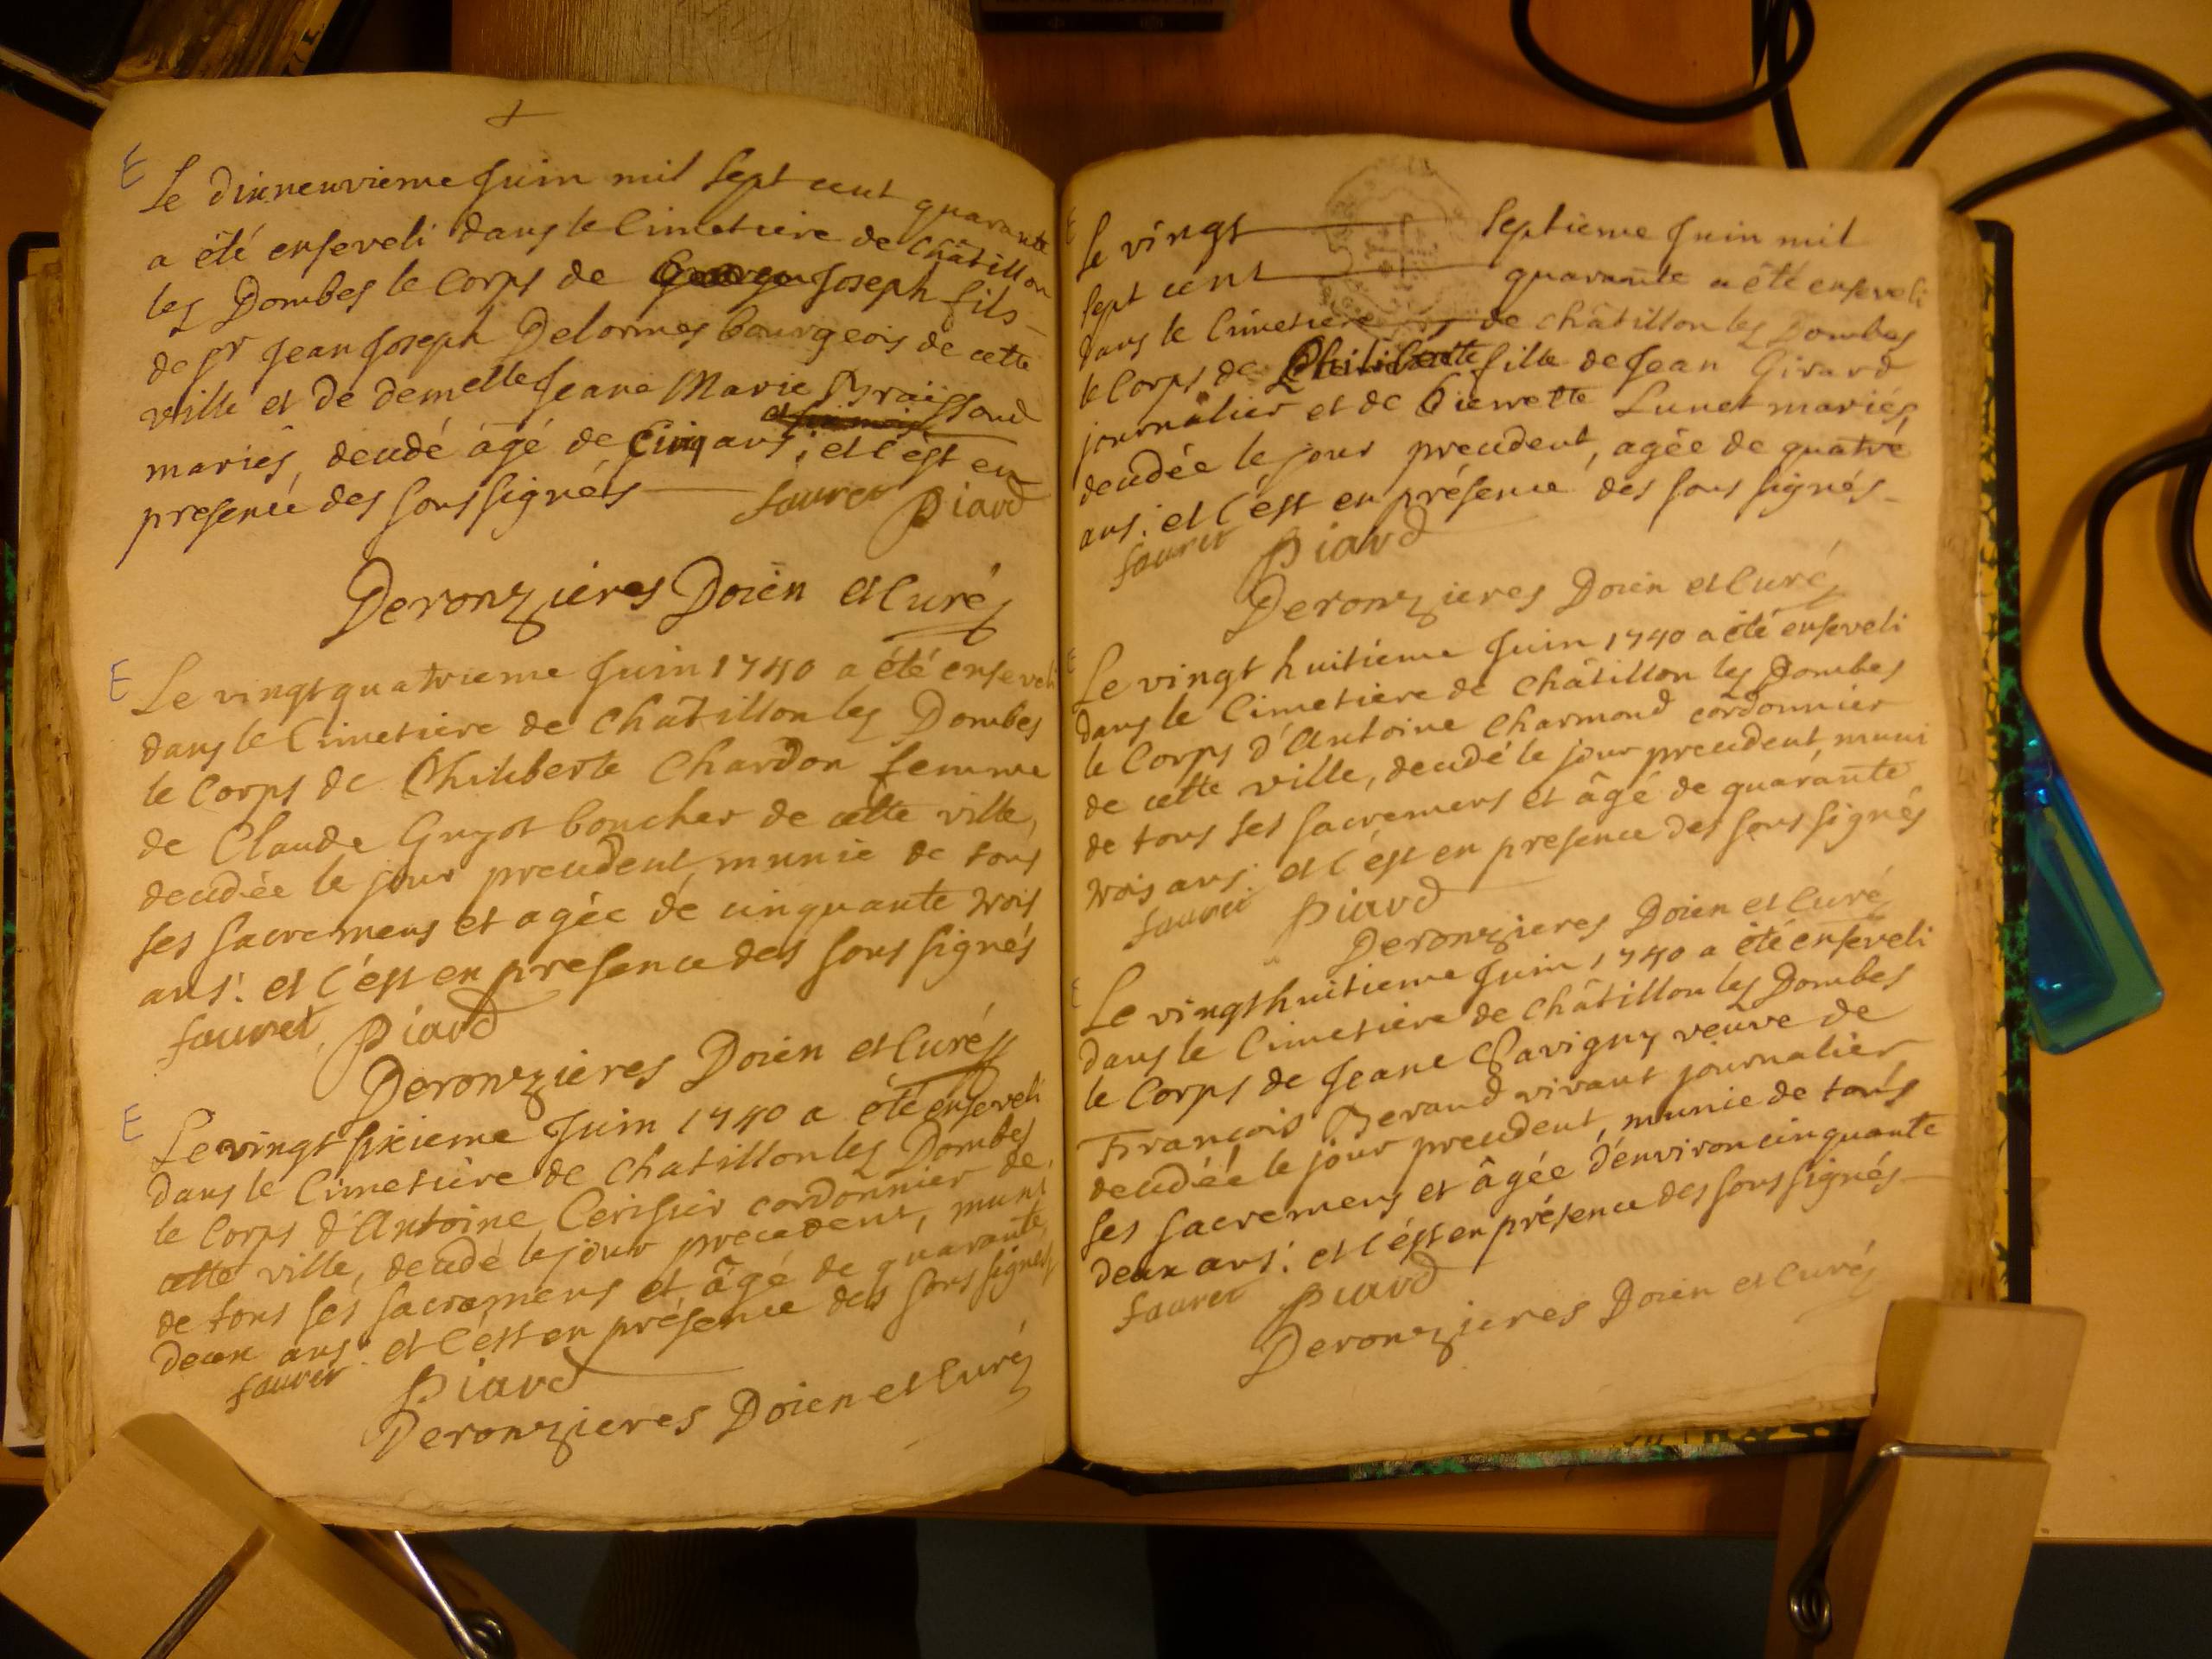 E
Le dixneuvieme Juin mil Sept cent quarante
a été enseveli dans le Cimetiere de Châtillon
les Dombes le Corps de Joseph fils
de Sr Jean Joseph Delormes bourgeois de cette
ville et de demelle Jeane Marie Braissoud
mariés, decedé âgé de Cinq ans; et c'est en
presence des soussignés
fauret Piard
Deronzieres Doien et Curé
E
Le vingt quatrieme Juin 1740 a été enseveli
dans le Cimetiere de Châtillon les Dombes
le Corps de Philiberte Chardon femme
de Claude Guyot boucher de cette ville,
decedée le jour precedent, munie de tous
ses sacremens et agée de cinquante trois
ans: et c'est en presence des sous signés
fauret Piard
Deronzieres Doien et Curé
E
Le vingt sixieme Juin 1740 a été enseveli
dans le Cimetiere de Chatillon les Dombes
le Corps d'Antoine Cerisier cordonnier de
cette ville, decedé le jour precedent, muni
de tous ses sacremens et âgé de quarante
deux ans et c'est en présence des sous signés
fauret Piard
Deronzieres Doien et Curé
E
Le vingt septieme Juin mil
sept cent quarante a été enseveli
dans le Cimetiere de Châtillon les Dombes
le Corps de Philiberte fille de Jean Girard
journalier et de Pierrette Lunet mariés,
decedée le jour precedent, agée de quatre
ans: et c'est en présence des sous signés
fauret Piard
Deronzieres Doien et Curé
E
Le vingt huitieme Juin 1740 a été enseveli
dans le Cimetiere de Châtillon les Dombes
le Corps d'Antoine Charmond cordonnier
de cette ville, decedé le jour precedent, muni
de tous ses sacremens et âgé de quarante
trois ans: et c'est en presence des sous signés
fauret Piard
Deronzieres Doien et Curé
E
Le vingt huitieme Juin 1740 a été enseveli
dans le Cimetiere de Châtillon les Dombes
le Corps de Jeane Savigny veuve de
François Beraud vivant journalier
decedée le jour precedent, munie de tous
ses sacremens et âgée d'environ cinquante
deux ans: et c'est en présence des sous signés
fauret Piard
Deronzieres Doien et Curé